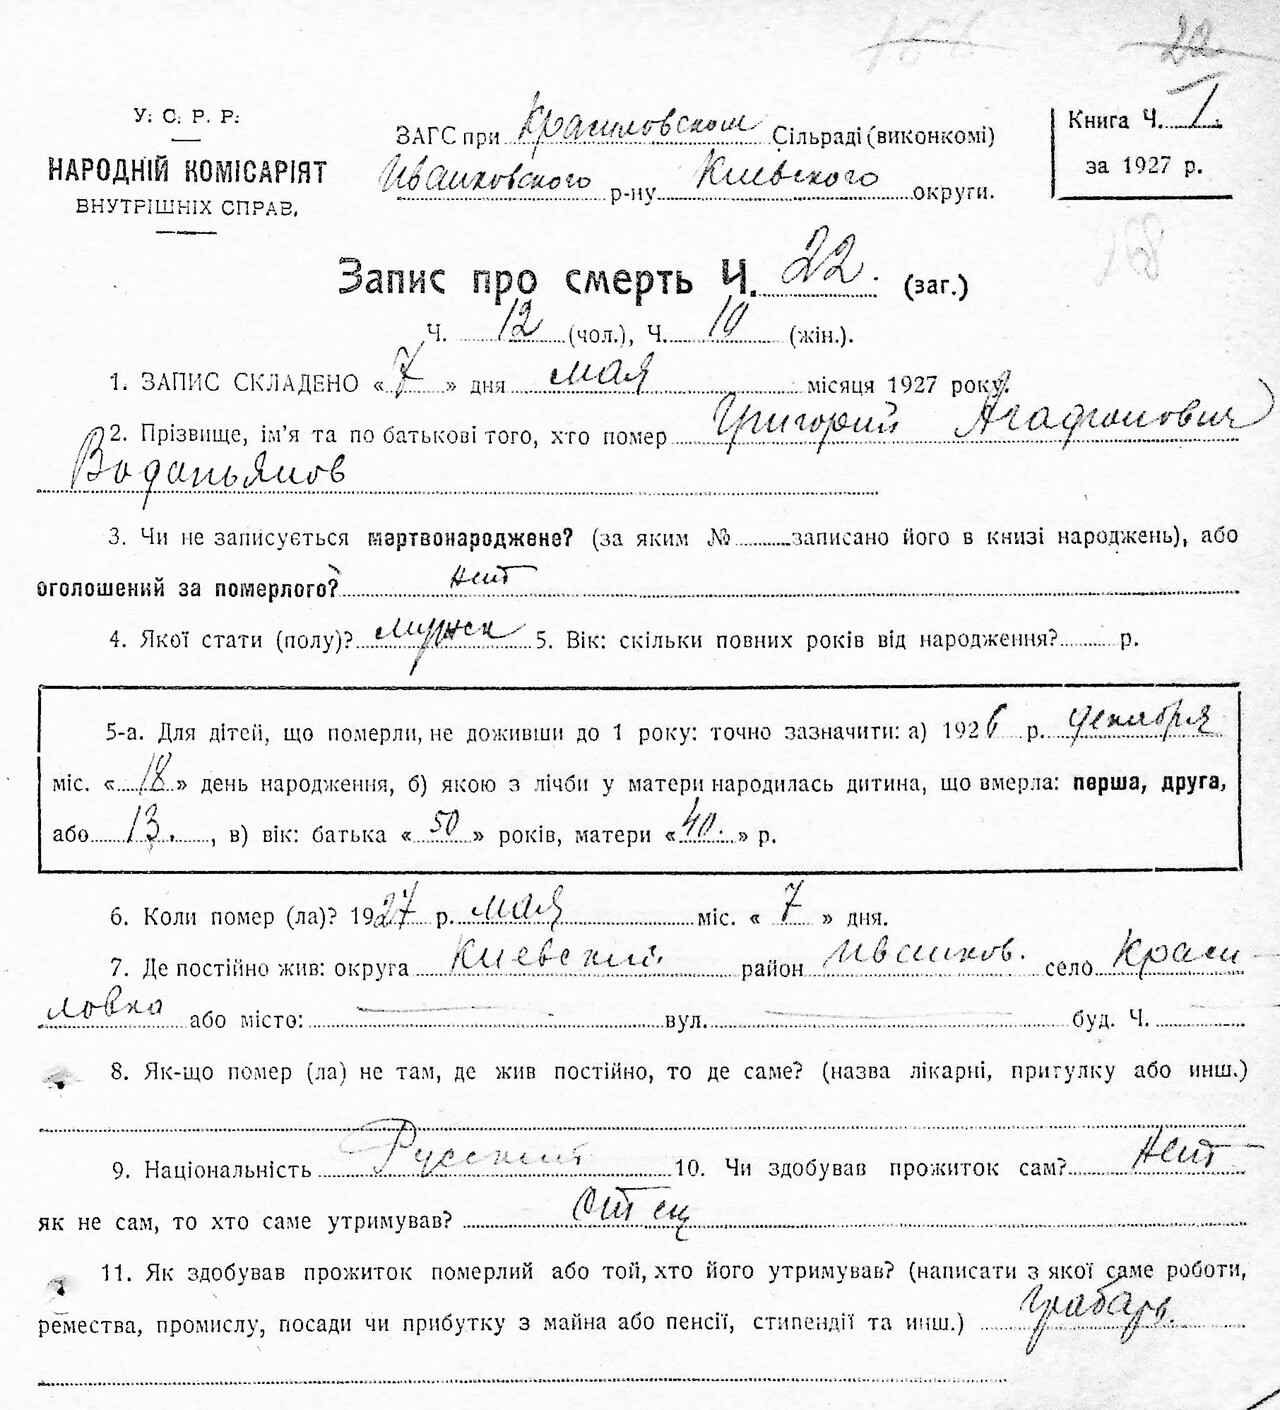 156 22
У. С. Р. Р.
НАРОДНІЙ КОМІСАРІЯТ
ВНУТРІШНІХ СПРАВ.
ЗАГС при Красиловском Сільраді (виконкомі)
Иванковского р-ну Киевского округи.
Книга Ч. I.
за 1927 р.
268
Запис про смерть Ч. 22. (заг.)
Ч. 12 (чол.), Ч. 10 (жін.).
1. ЗАПИС СКЛАДЕНО « 7 » дня мая місяця 1927 року.
2. Прізвище, ім'я та по батькові того, хто помер Григорий Агафонович
Водопьянов
3. Чи не записується мертвонароджене? (за яким № записано його в книзі народжень), або
оголошений за померлого? нет
4. Якої стати (полу)? мужск 5. Вік: скільки повних років від народження? р.
5-а. Для дітей, що померли, не доживши до 1 року: точно зазначити: а) 1926 р. декабря
міс. « 18 » день народження, б) якою з лічби у матери народилась дитина, що вмерла: перша, друга,
або 13. , в) вік: батька « 50 » років, матери « 40. » р.
6. Коли помер (ла)? 1927 р. мая міс. « 7 » дня.
7. Де постійно жив: округа Киевский район Иванков. село Краси-
ловка або місто: вул. буд. Ч.
8. Як-що помер (ла) не там, де жив постійно, то де саме? (назва лікарні, притулку або инш.)
9. Національність Русский 10. Чи здобував прожиток сам? Нет
як не сам, то хто саме утримував? Отец
11. Як здобував прожиток померлий або той, хто його утримував? (написати з якої саме роботи,
ремества, промислу, посади чи прибутку з майна або пенсії, стипендії та инш.) Грабарь.